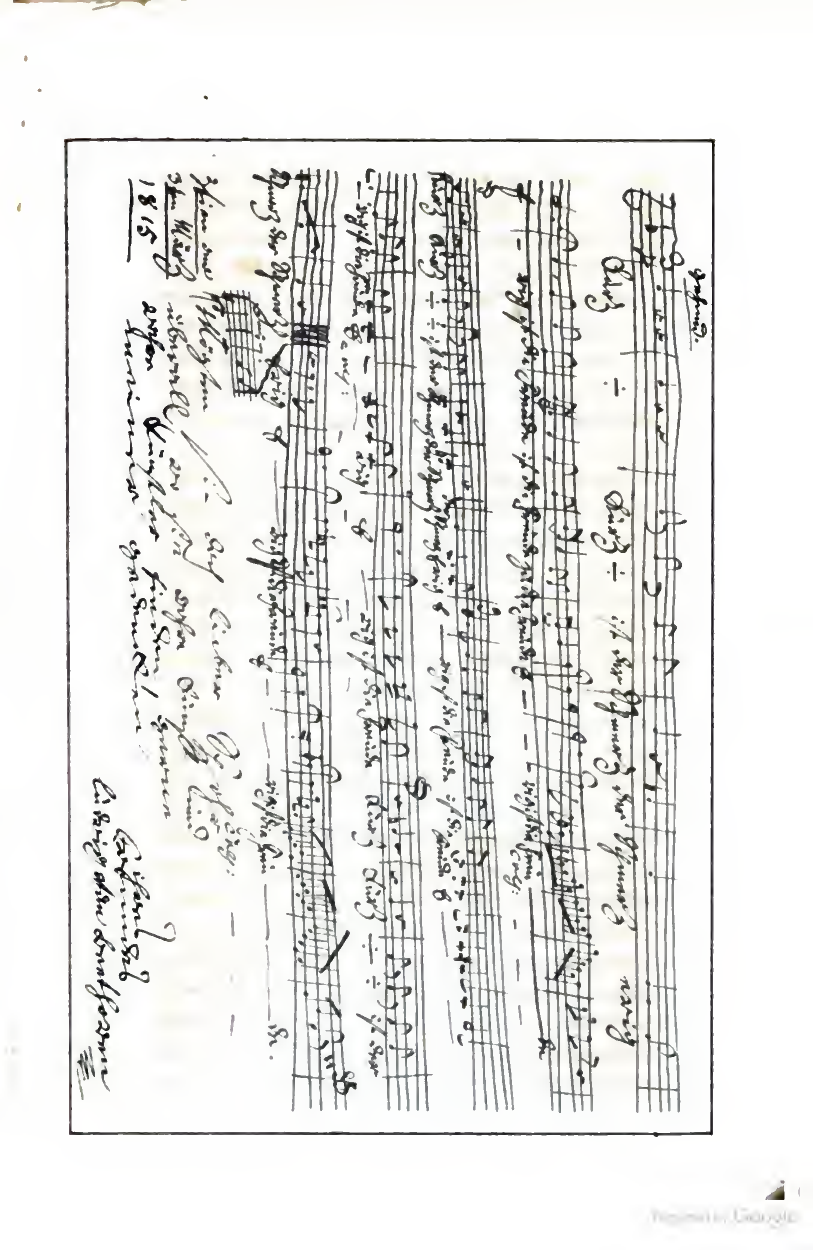 Kurz ÷ Kurz ÷ ist der Schmerz der Schmerz ewig
ewig ist die Freude ist die Freude ist die Freude
Kurz Kurz ÷ ÷ ist der Schmerz der Schmerz ewig ewig ist die Freude ist die Freude
ewig ist die Freude ewig ewig ist die Freude Kurz Kurz ÷ ÷ ist der
Schmerz der Schmerz ewig ewig ewig ist die Freude ewig ist die Freu de.
Wien am
3ten März
1815
Mögten Sie doch lieber Spohr
überall, wo sie wahre Kunst und
wahre Künstler finden, gerne
meiner gedenken
ihres Freundes
ludwig van Beethoven
Digitized by Google